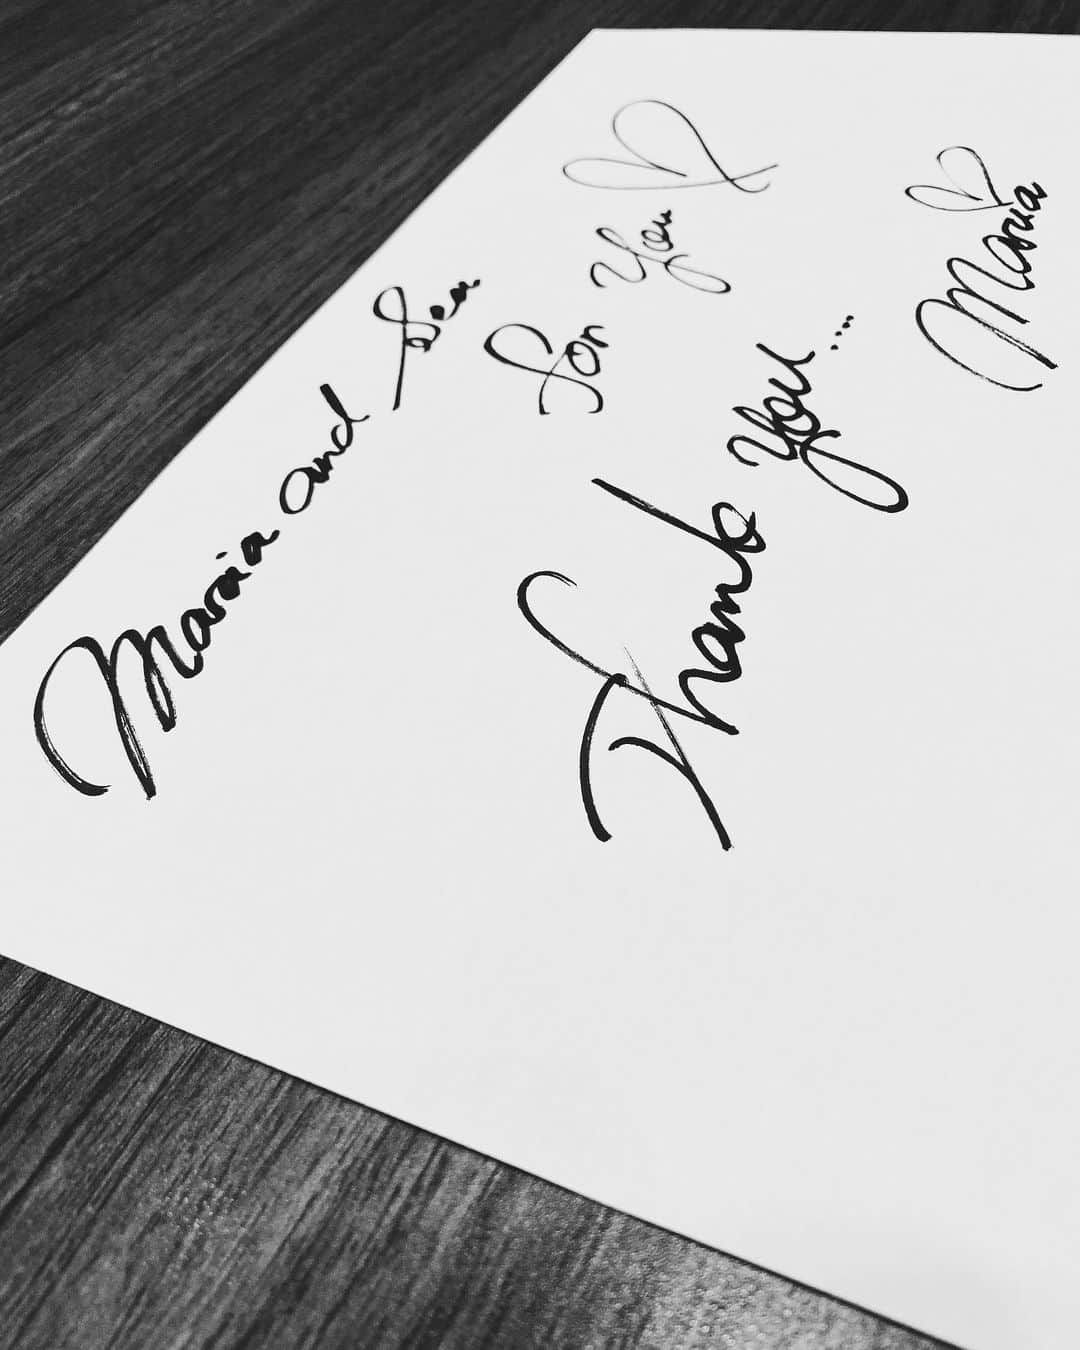 Maria and Sea
For You
Thank you....
Maria